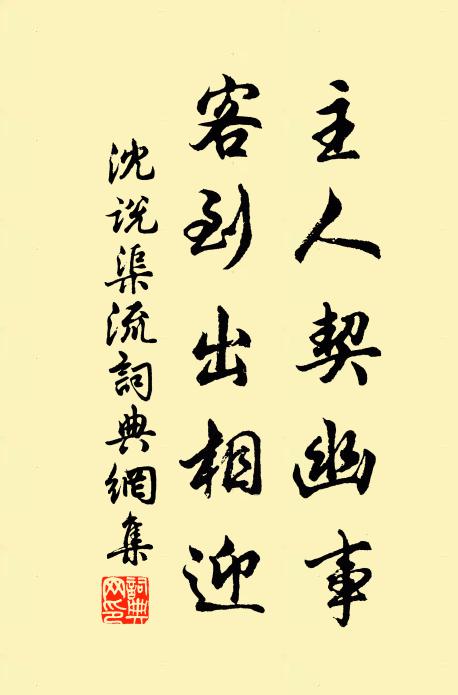 主人契幽事
客到出相迎
沈説渠流詞典網集
詞典網印